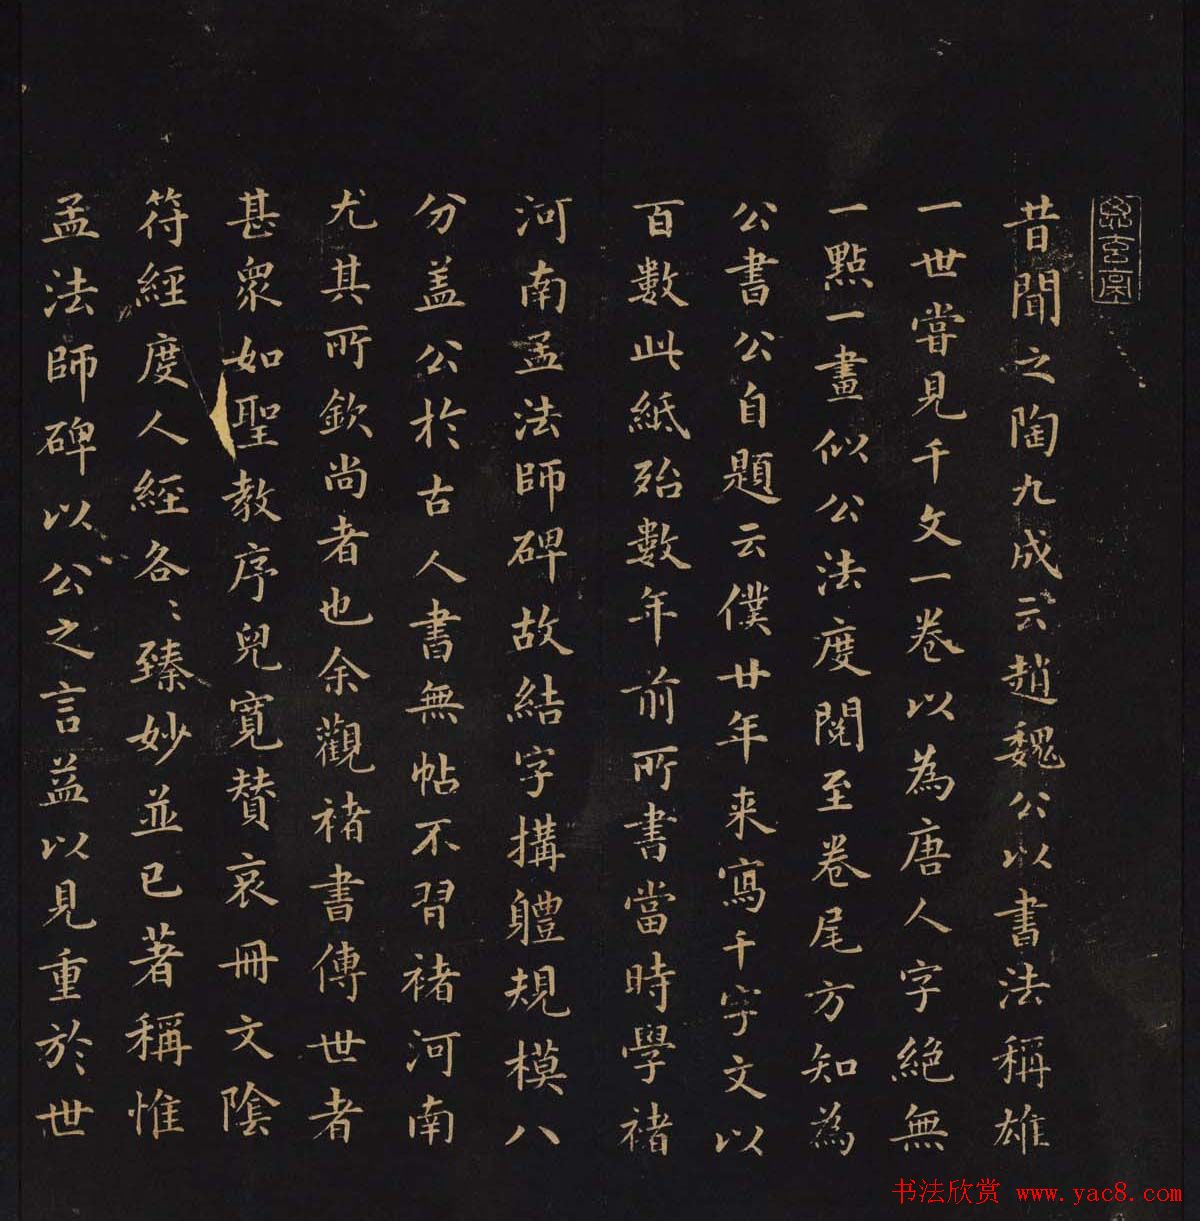 昔聞之陶九成云趙魏公以書法稱雄
一世甞見千文一卷以為唐人字絕無
一點一畫似公法度閱至卷尾方知為
公書公自題云僕廿年来寫千字文以
百數此紙殆數年前所書當時學褚
河南孟法師碑故結字搆軆規模八
分盖公於古人書無帖不習褚河南
尤其所欽尚者也余觀褚書傳世者
甚衆如聖教序兒寬贊哀冊文陰
符經度人經各〻臻妙並已著稱惟
孟法師碑以公之言益以見重於世
书法欣赏 www.yac8.com